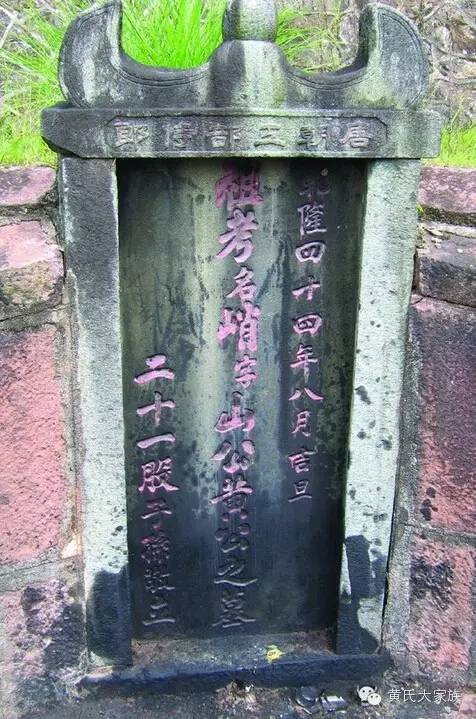 唐朝工部侍郎
乾隆四十四年八月吉旦
祖考名峭字山公黄公之墓
二十一股子孫敬立
黄氏大家族